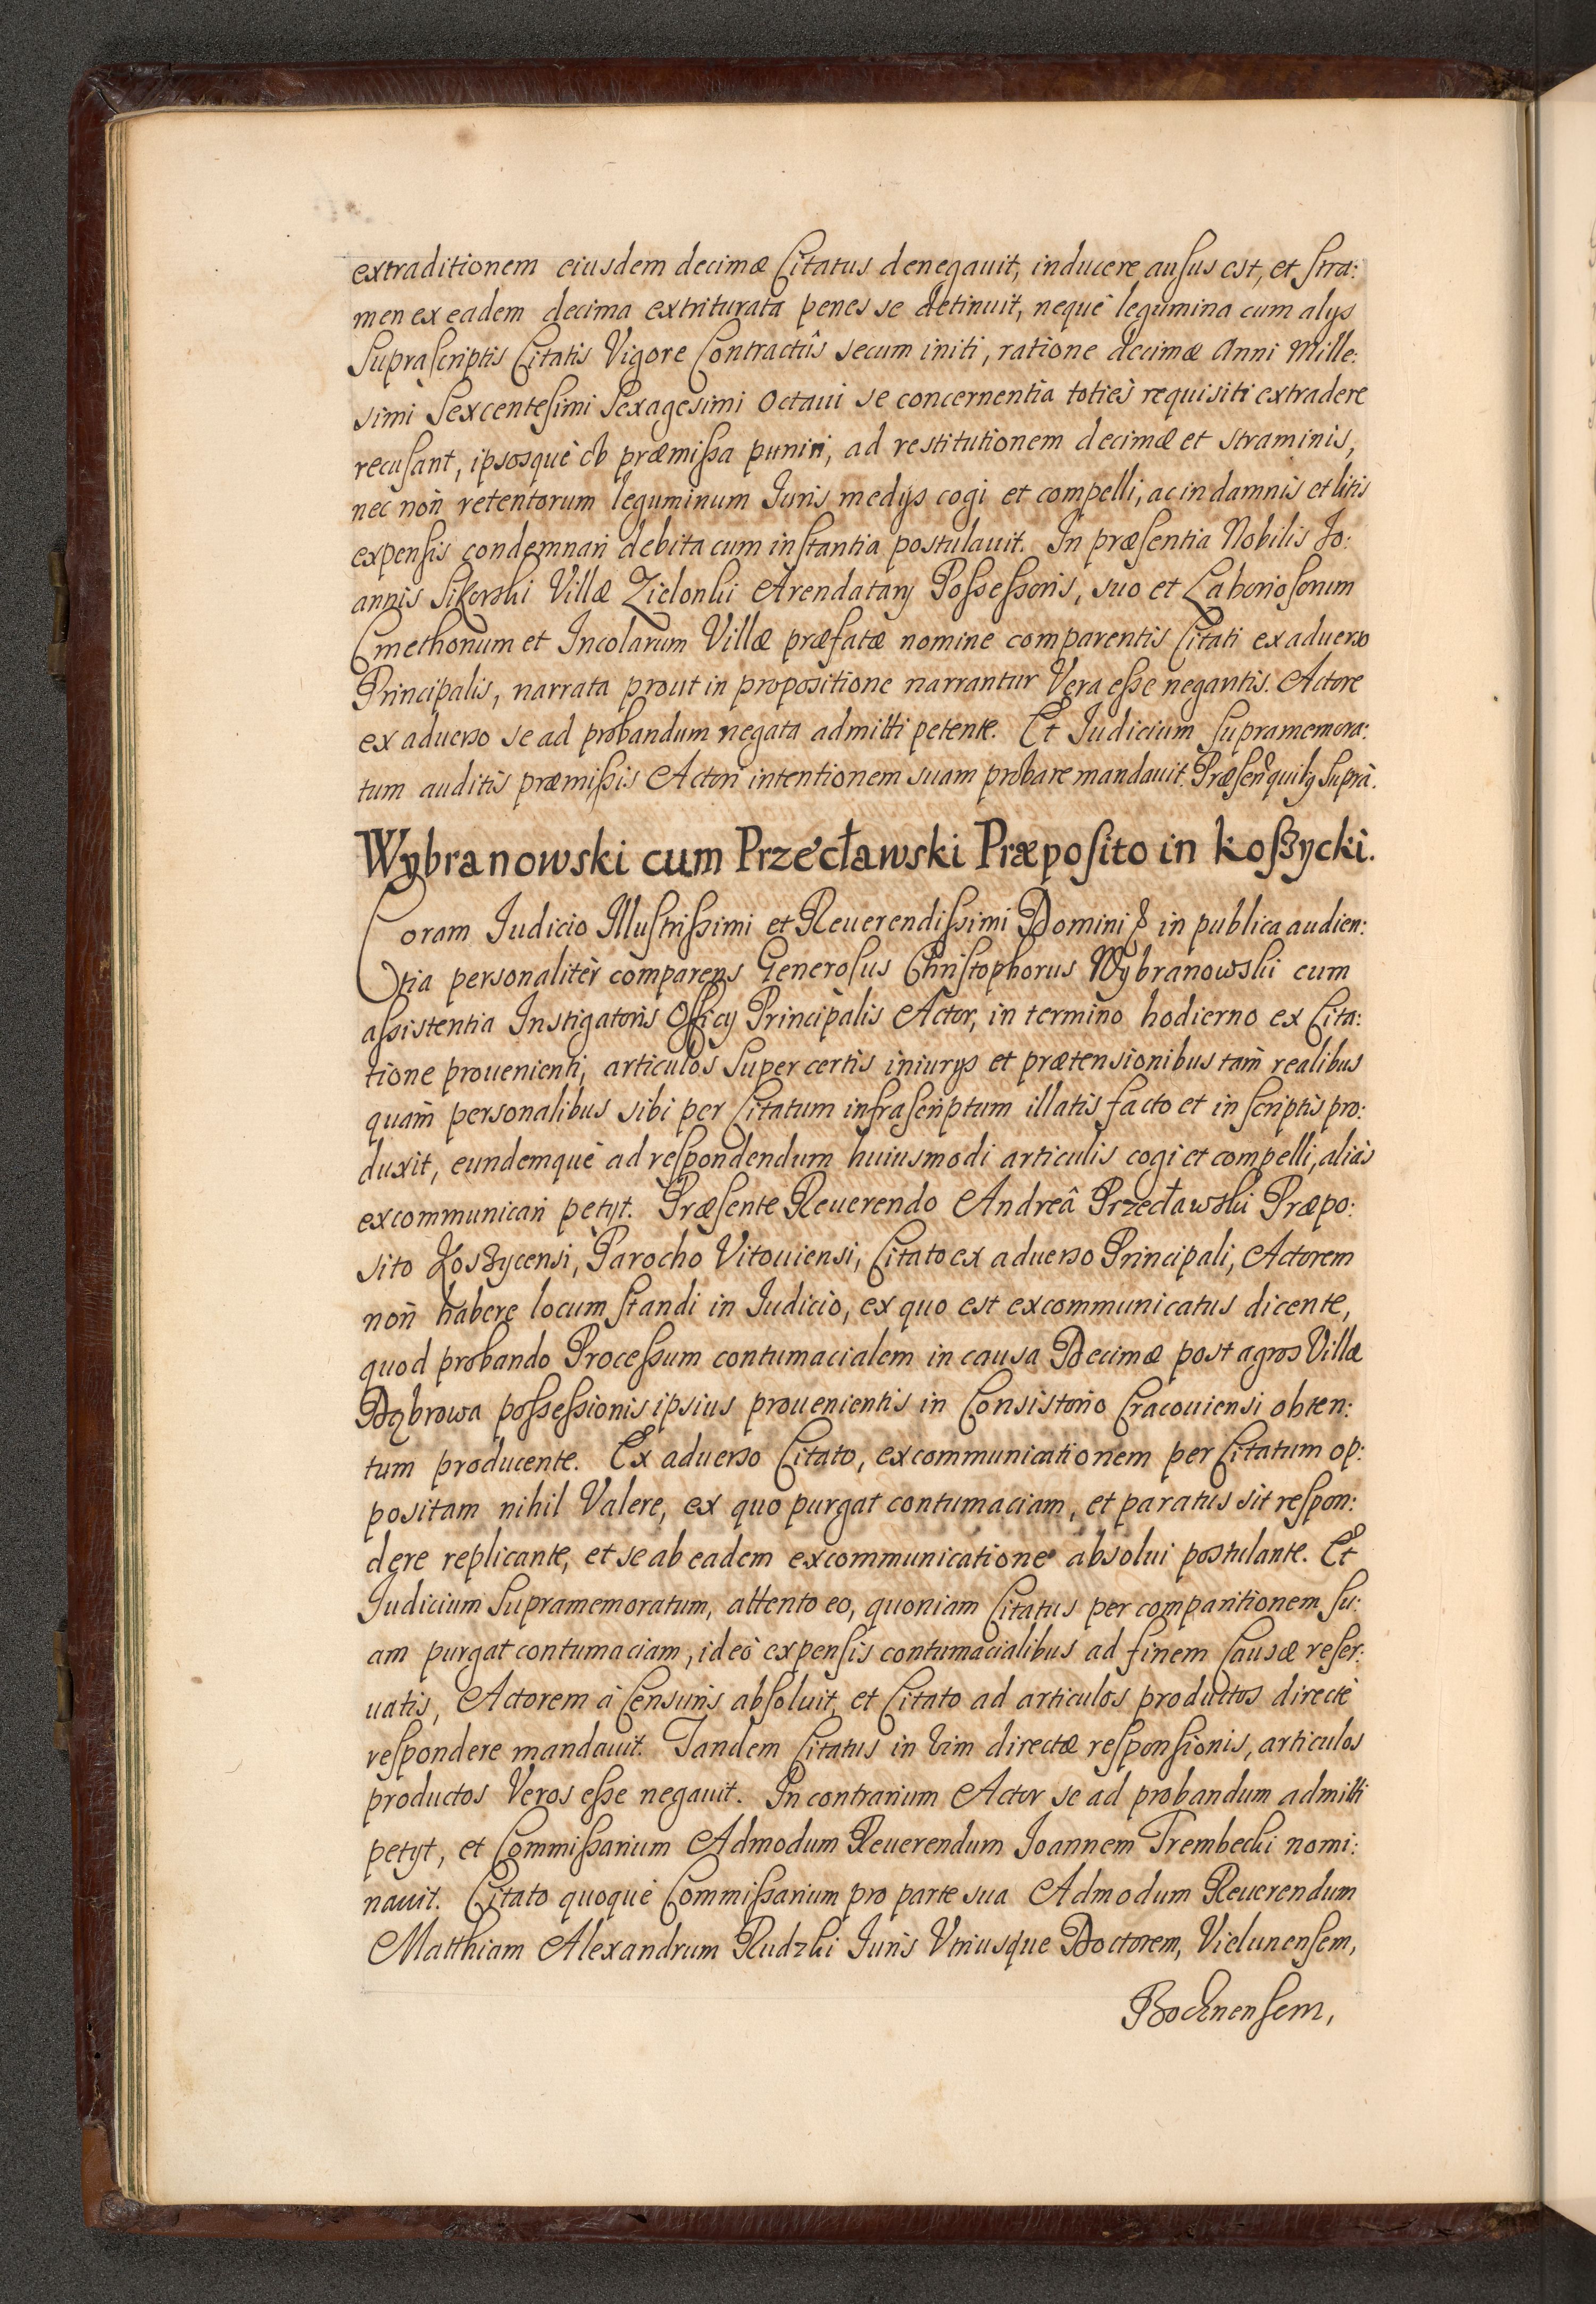 extraditionem eiusdem decimæ Citatus denegauit, inducere ausus est, et stra:
men ex eadem decima extriturata penes se detinuit, neque legumina cum alijs
Suprascriptis Citatis Vigore Contractûs secum initi, ratione decimæ Anni Mille:
simi Sexcentesimi Sexagesimi Octaui se concernentia toties requisiti extradere
recusant, ipsosquè ob præmissa puniri, ad restitutionem decimæ et straminis,
nec non retentorum leguminum Iuris medijs cogi et compelli, ac in damnis et litis
expensis condemnari debita cum instantia postulauit. In præsentia Nobilis Jo:
annis Sikorski Villæ Zielonki Arendatarij Possessoris, suo et Laboriosorum
Cmethonum et Incolarum Villæ præfatæ nomine comparentis Citati ex aduerso
Principalis, narrata prout in propositione narrantur Vera esse negantis. Actore
ex aduerso se ad probandum negata admitti petente. Et Iudicium Supramemora:
tum auditis præmissis Actori intentionem suam probare mandauit. Præsen quibus Suprà.
Wybranowski cum Przecławski Præposito in koszycki.
Coram Iudicio Illustrissimi et Reuerendissimi Domini & in publica audien:
tia personalitèr comparens Generosus Christophorus Wybranowski cum
assistentia Instigatoris Officij Principalis Actor, in termino hodierno ex Cita:
tione prouenienti, articulos Super certis iniurijs et prætensionibus tam realibus
quam personalibus sibi per Citatum infrascriptum illatis facto et in scriptis pro:
duxit, eundemquè ad respondendum huiusmodi articulis cogi et compelli, aliàs
excommunicari petijt. Præsente Reuerendo Andreâ Przecławski Præpo:
sito Koszycensi, Parocho Vitouiensi, Citato ex aduerso Principali, Actorem
non habere locum standi in Iudicio, ex quo est excommunicatus dicente,
quod probando Processum contumacialem in causa Decimæ post agros Villæ
Dąbrowa possessionis ipsius prouenientis in Consistorio Cracouiensi obten:
tum producente. Ex aduerso Citato, excommunicationem per Citatum op:
positam nihil Valere, ex quo purgat contumaciam, et paratus sit respon:
dere replicante, et se ab eadem excommunicatione absolui postulante. Et
Iudicium Supramemoratum, attento eo, quoniam Citatus per comparitionem su:
am purgat contumaciam, ideò expensis contumacialibus ad finem Causæ reser:
uatis, Actorem à Censuris absoluit, et Citato ad articulos productos directè
respondere mandauit. Tandem Citatus in Vim directæ responsionis, articulos
productos Veros esse negauit. In contrarium Actor se ad probandum admitti
petijt, et Commissarium Admodum Reuerendum Ioannem Trembecki nomi:
nauit. Citato quoquè Commissarium pro parte sua Admodum Reuerendum
Matthiam Alexandrum Rudzki Iuris Vtriusque Doctorem, Vielunensem,
Bochnensem,